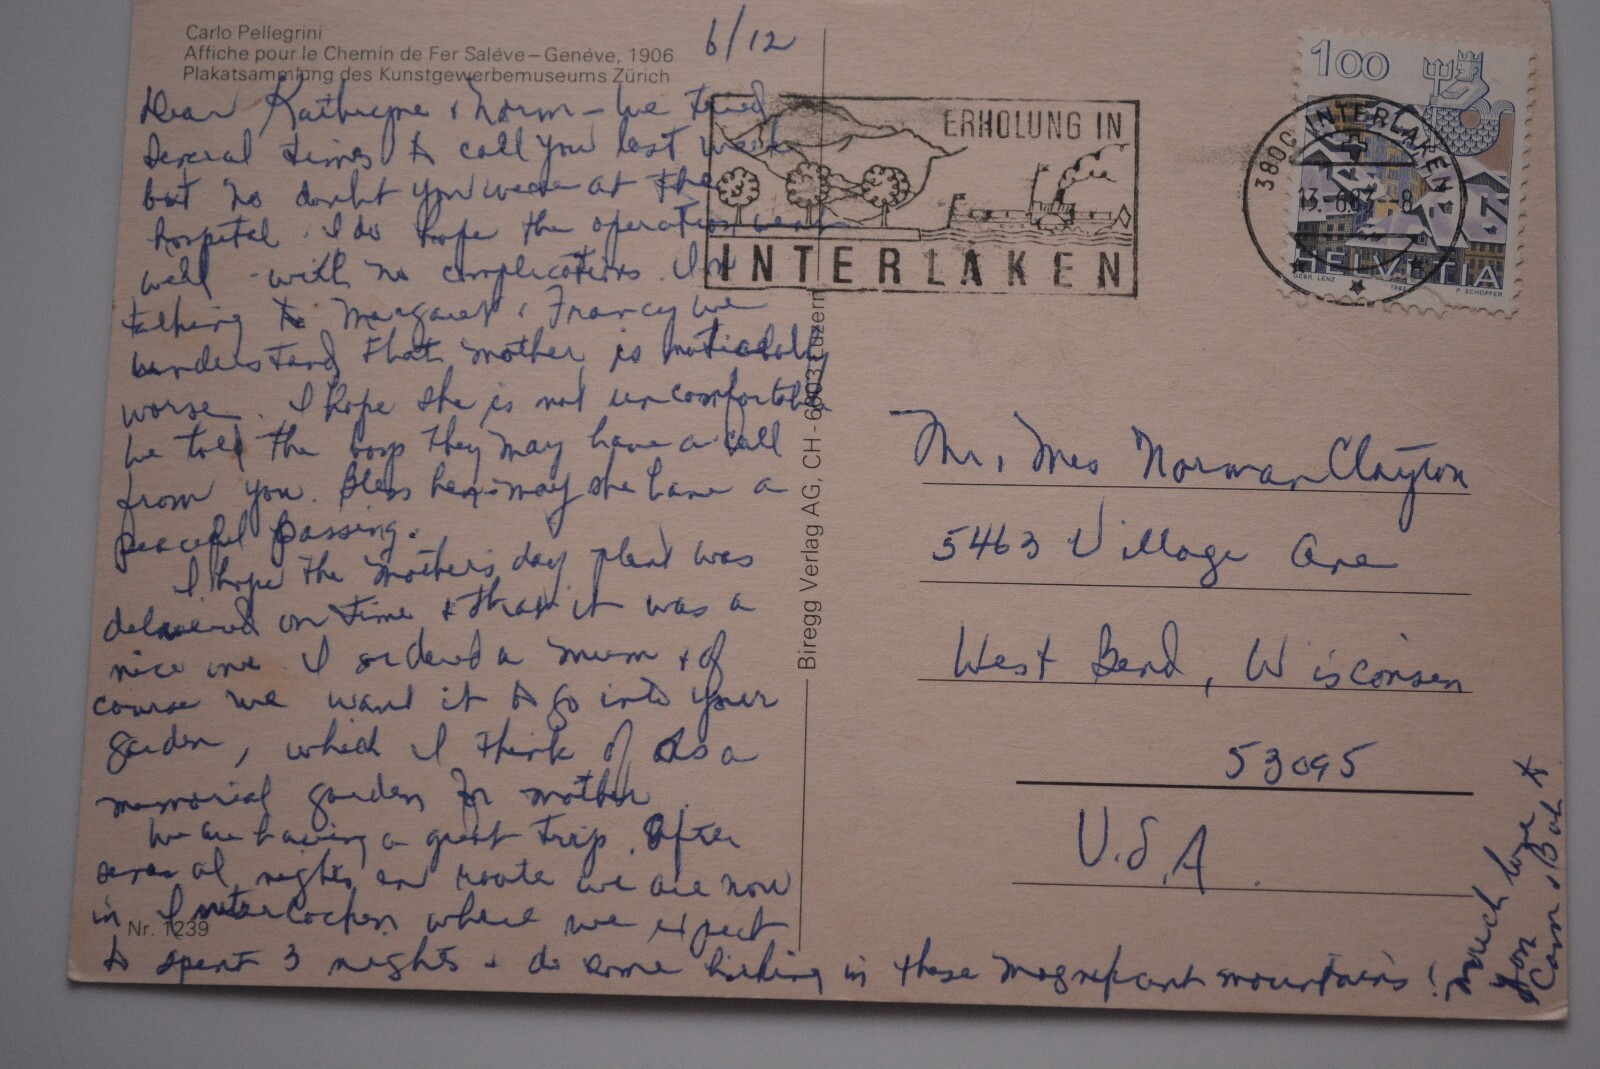 Carlo Pellegrini
Affiche pour le Chemin de Fer Salève–Genève, 1906
Plakatsammlung des Kunstgewerbemuseums Zürich
6/12
Dear Kathryne & Norm – We tried
several times to call you last week
but no doubt you were at the
hospital. I do hope the operation went
well – with no complications. In
talking to Margaret & Francy we
understand that mother is
worse. I hope she is not uncomfortable
We told the boys they may have a call
from you. Bless her – may she have a
peaceful passing.
I hope the mother's day plant was
delivered on time & that it was a
nice one. I ordered a mum & of
course we want it to go into your
garden, which I think of as a
memorial garden for mother.
We are having a great trip. After
several nights en route we are now
in Interlocken where we expect
to spent 3 nights & do some hiking in these magnificant mountains!
Much love to
you
Conn & Bob
Nr. 1239
Biregg Verlag AG, CH-6003 Luzern
ERHOLUNG IN
INTERLAKEN
3800 INTERLAKEN
13.-6.83.--8
100
HELVETIA
GEBR. LENZ
1982
P. SCHOPFER
Mr. & Mrs Norman Clayton
5463 Village Ave
West Bend, Wisconsen
53095
U.S.A.